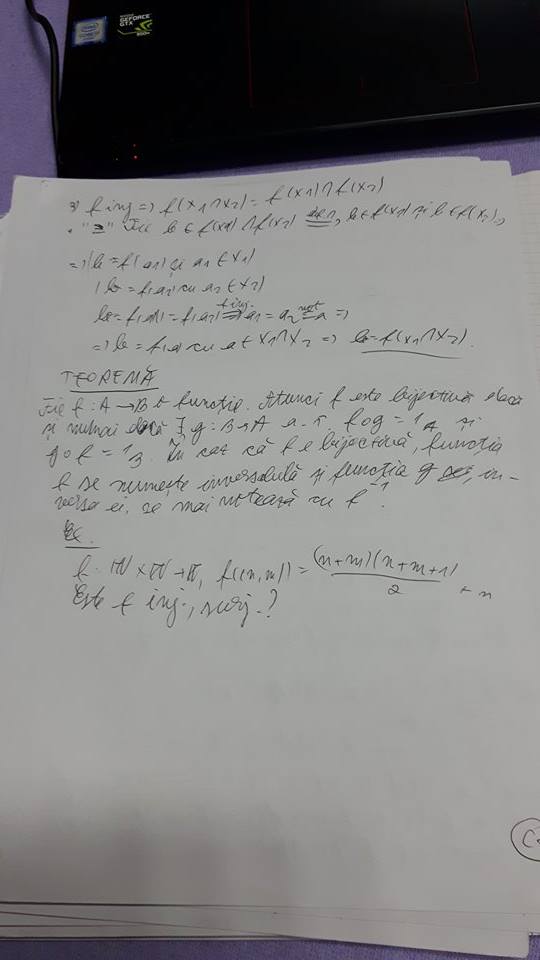 intel
GEFORCE
GTX
3) f inj => f(x1∩x2) = f(x1)∩f(x2)
• "⊇" Fie b ∈ f(x1)∩f(x2) => b∈f(x1) și b∈f(x2),
=> b = f(a1) și a1 ∈ x1)
b = f(a2) cu a2 ∈ x2)
b = f(a1) = f(a2) f inj. => a1 = a2 not = a =>
=> b = f(a) cu a ∈ x1∩x2 => b = f(x1∩x2).
TEOREMĂ
Fie f: A → B o funcție. Atunci f este bijectivă dacă
și numai dacă ∃ g: B→A a. î fog = 1A și
gof = 1B. În caz că f e bijectivă, funcția
f se numește inversabilă și funcția g, in-
versa ei, se mai notează cu f⁻¹.
Ex.
f: ℕ×ℕ→ℕ, f((n,m)) = (n+m)(n+m+1)/2 + n
Este f inj., surj.?